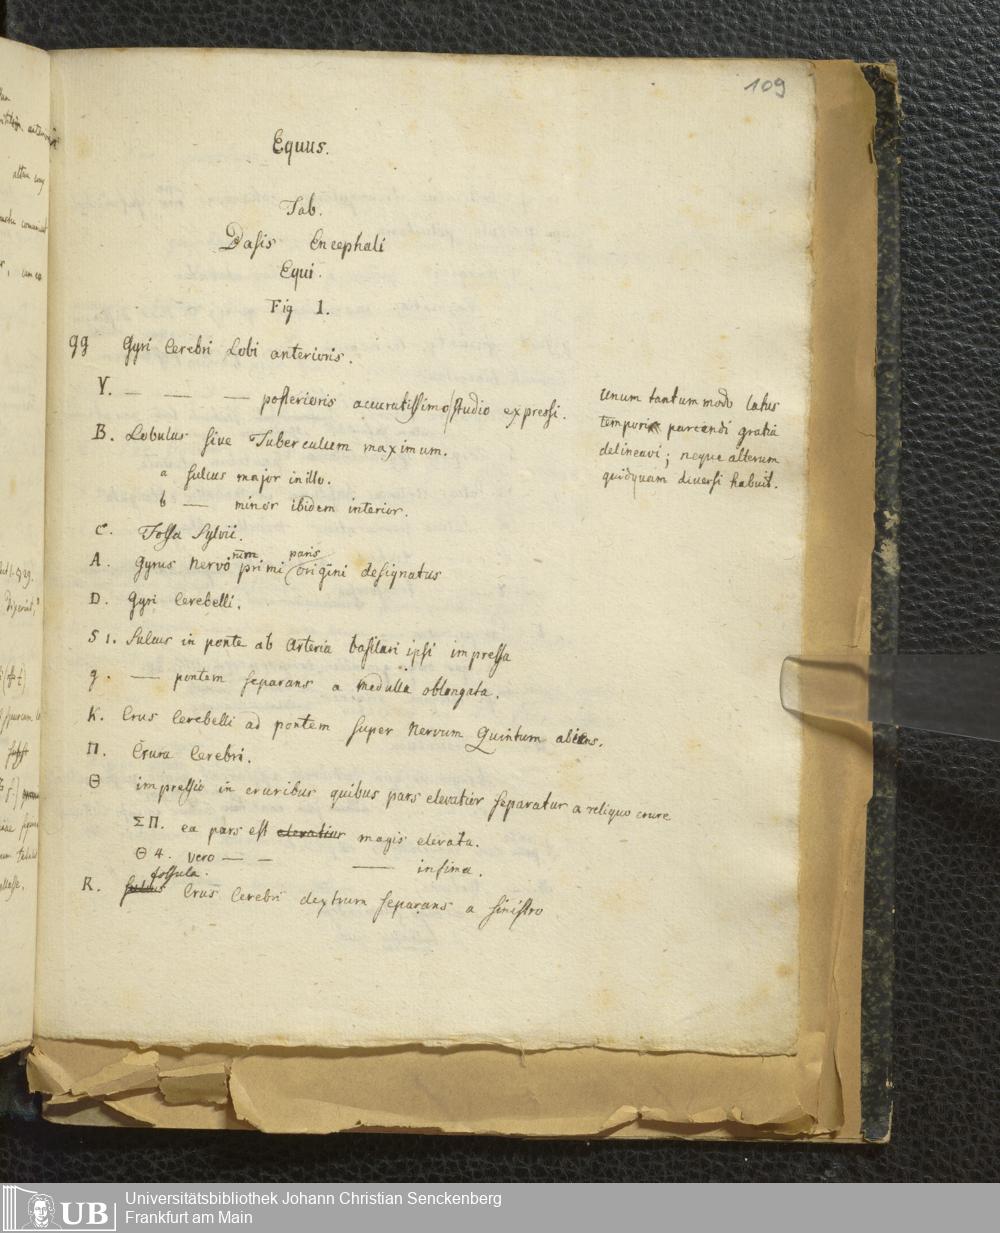 109
Equus.
Tab.
Basis Encephali
Equi.
Fig 1.
gg Gyri Cerebri Lobi anterioris.
Y. — — — posterioris accuratissimo studio expressi.
B. Lobulus sive Tuberculum maximum.
a sulcus major in illo.
b — minor ibidem interior.
C. Fossa Sylvii.
A. Gyrus nervorum primi paris origini designatus
D. Gyri Cerebelli.
S 1. Sulcus in ponte ab Arteria basilari ipsi impressa
g. — pontem separans a Medulla oblongata.
K. Crus Cerebelli ad pontem super Nervum Quintum abiens.
Π. Crura Cerebri.
Θ impressio in cruribus quibus pars elevatior separatur a reliquo crure
ΣΠ. ea pars est elevatior magis elevata.
Θ 4. vero — — — infima.
R. sulcus fossula. Crus Cerebri dextrum separans a sinistro
Unum tantummodo latus
temporis parcendi gratia
delineavi; neque alterum
quidquam diversi habuit.
Universitätsbibliothek Johann Christian Senckenberg
Frankfurt am Main
UB